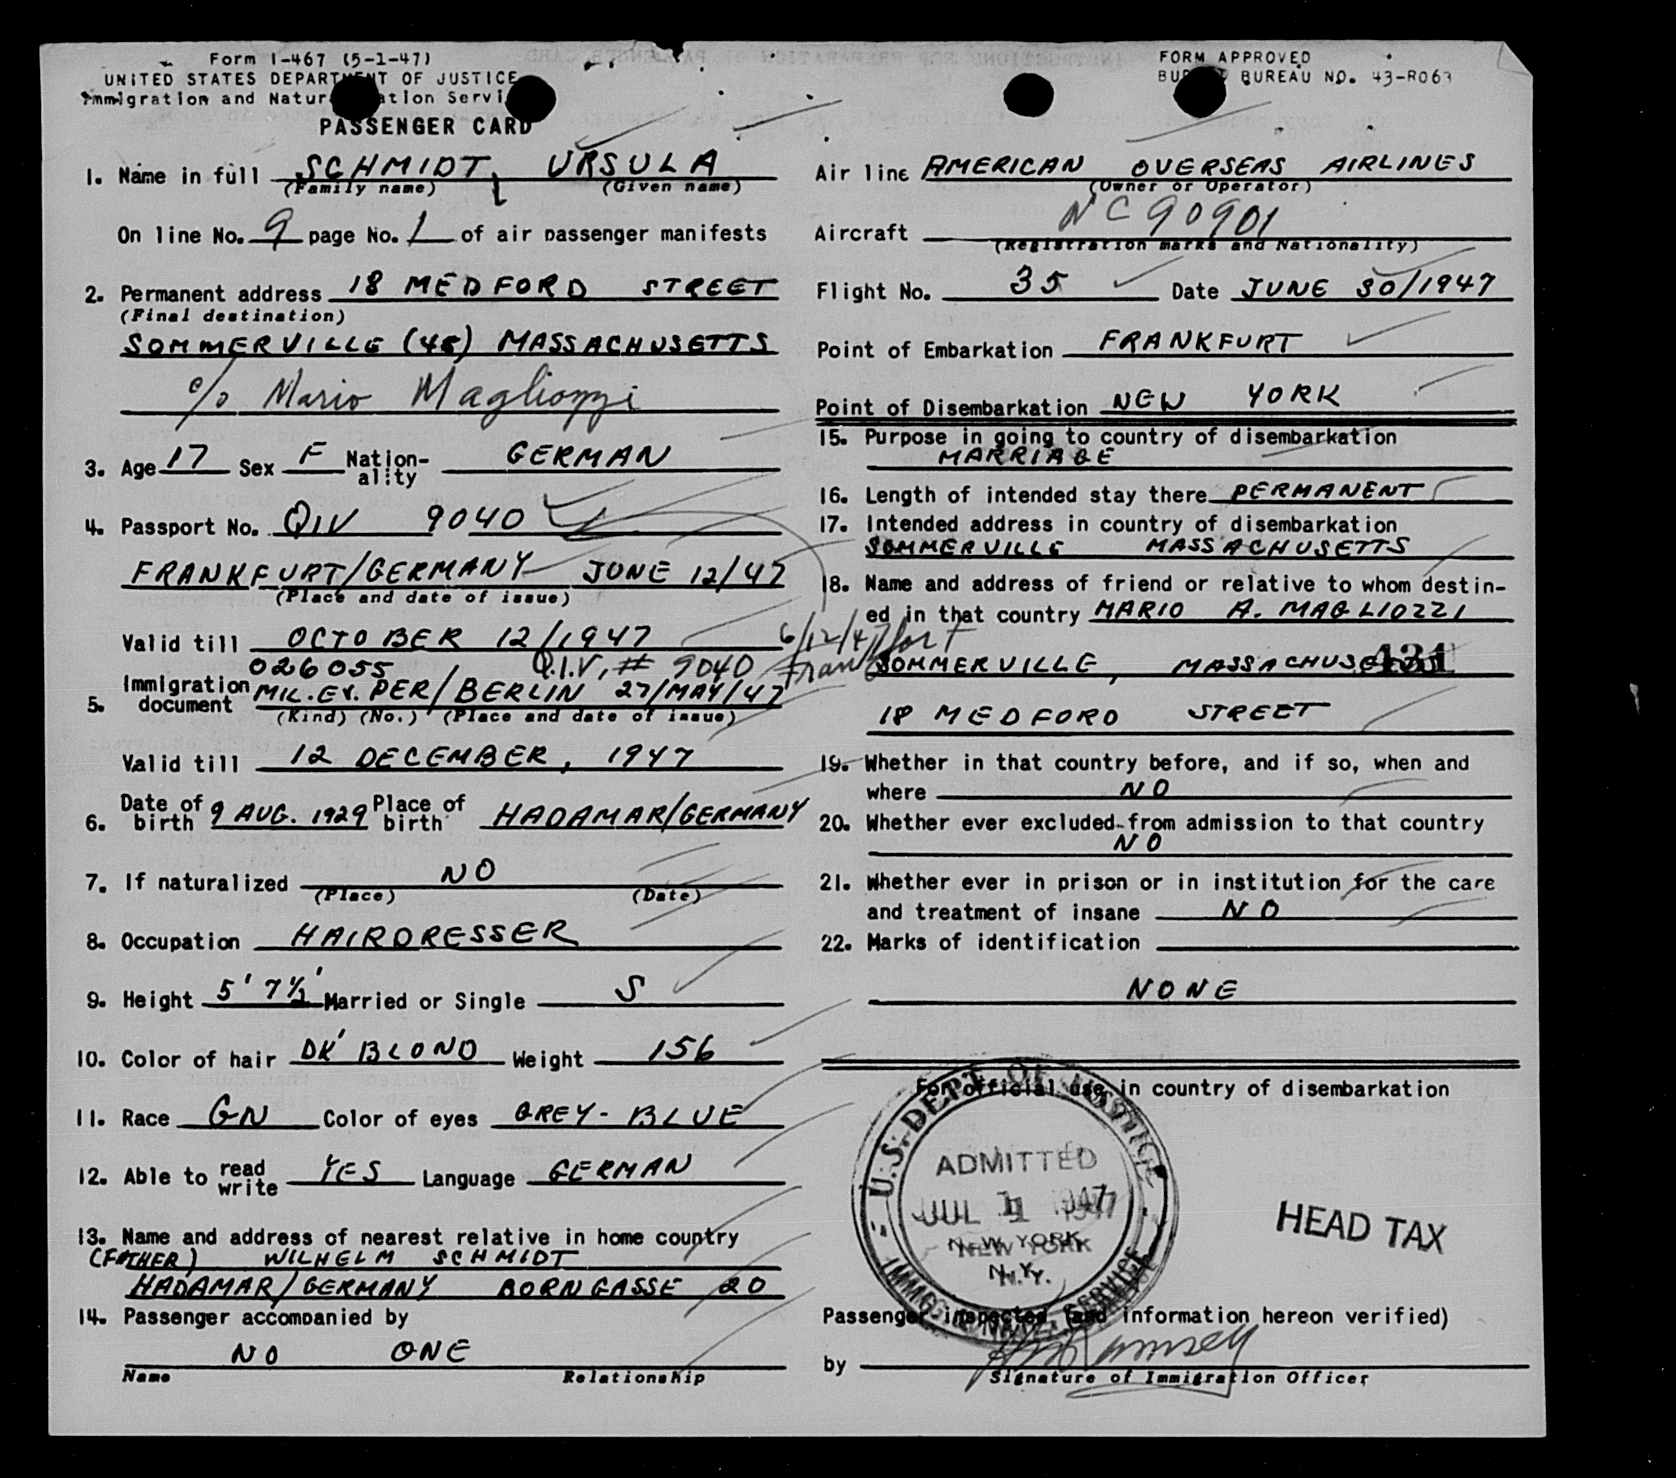 Form I-467 (5-1-47)
UNITED STATES DEPARTMENT OF JUSTICE
Immigration and Naturalization Servi
PASSENGER CARD
FORM APPROVED
BUREAU NO. 43-R063
1. Name in full SCHMIDT, URSULA
(Family name) (Given name)
On line No. 9 page No. 1 of air passenger manifests
2. Permanent address 18 MEDFORD STREET
(Final destination)
SOMMERVILLE (45) MASSACHUSETTS
c/o Mario Magliozzi
3. Age 17 Sex F Nation-ality GERMAN
4. Passport No. QIV 9040
FRANKFURT/GERMANY JUNE 12/47
(Place and date of issue)
Valid till OCTOBER 12/1947
026055 Q.I.V. # 9040 6/12/47 Frankfort
5. Immigration document MIL. EX. PER/BERLIN 27/MAY/47
(Kind) (No.) (Place and date of issue)
Valid till 12 DECEMBER, 1947
6. Date of birth 9 AUG. 1929 Place of birth HADAMAR/GERMANY
7. If naturalized NO
(Place) (Date)
8. Occupation HAIRDRESSER
9. Height 5' 7½' Married or Single S
10. Color of hair DK' BLOND Weight 156
11. Race GN Color of eyes GREY-BLUE
12. Able to read write YES Language GERMAN
13. Name and address of nearest relative in home country
(FATHER) WILHELM SCHMIDT
HADAMAR/GERMANY BORNGASSE 20
14. Passenger accompanied by
NO ONE
Name Relationship
Air line AMERICAN OVERSEAS AIRLINES
(Owner or Operator)
Aircraft NC90901
(Registration marks and Nationality)
Flight No. 35 Date JUNE 30/1947
Point of Embarkation FRANKFURT
Point of Disembarkation NEW YORK
15. Purpose in going to country of disembarkation
MARRIAGE
16. Length of intended stay there PERMANENT
17. Intended address in country of disembarkation
SOMMERVILLE MASSACHUSETTS
18. Name and address of friend or relative to whom destin-
ed in that country MARIO A. MAGLIOZZI
SOMMERVILLE, MASSACHUSETTS 431
18 MEDFORD STREET
19. Whether in that country before, and if so, when and
where NO
20. Whether ever excluded from admission to that country
NO
21. Whether ever in prison or in institution for the care
and treatment of insane NO
22. Marks of identification
NONE
For official use in country of disembarkation
U.S. DEPT. OF JUSTICE
ADMITTED
JUL 1 1947
NEW YORK
N.Y.
IMMIGRATION SERVICE
HEAD TAX
Passenger inspected (and information hereon verified)
by Ramsey
Signature of Immigration Officer